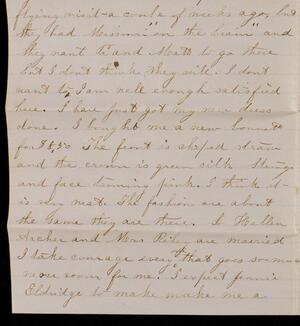 flying visit - a couple of weeks ago, but
they had Missouri "on the brain" and
they want Pa and Matt to go there
but I don't think they will. I don't
want to I am well enough satisfied
here. I have just got my new dress
done. I bought me a new bonnet
for $8.50 The front is striped straw
and the crown is green silk Strings
and face trimming pink. I think it
is very neat. The fashion are about
the same they are there. So Hellen
Archer and Mors Riley are married
I take courage every that goes so much
more room for me. I expect Jennie
Eldridge to make make me a